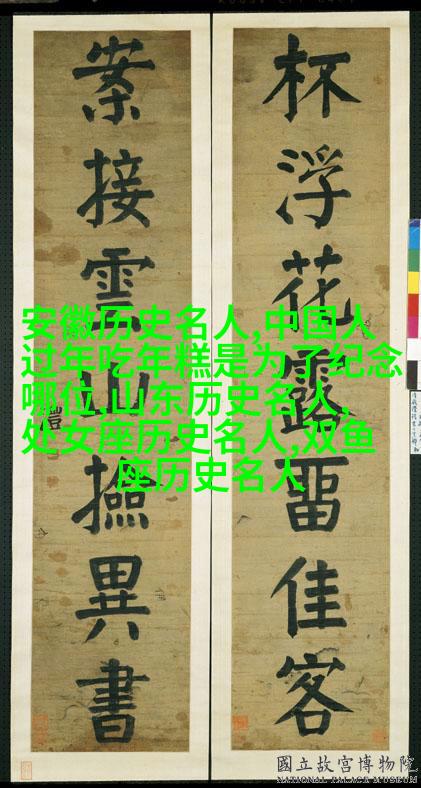 杯浮花露畱佳客
案接雲山撫異書
安徽历史名人,中国人
过年吃年糕是为了纪念
哪位,山东历史名人,
处女座历史名人,双鱼
座历史名人
國立故宮博物院
NATIONAL PALACE MUSEUM